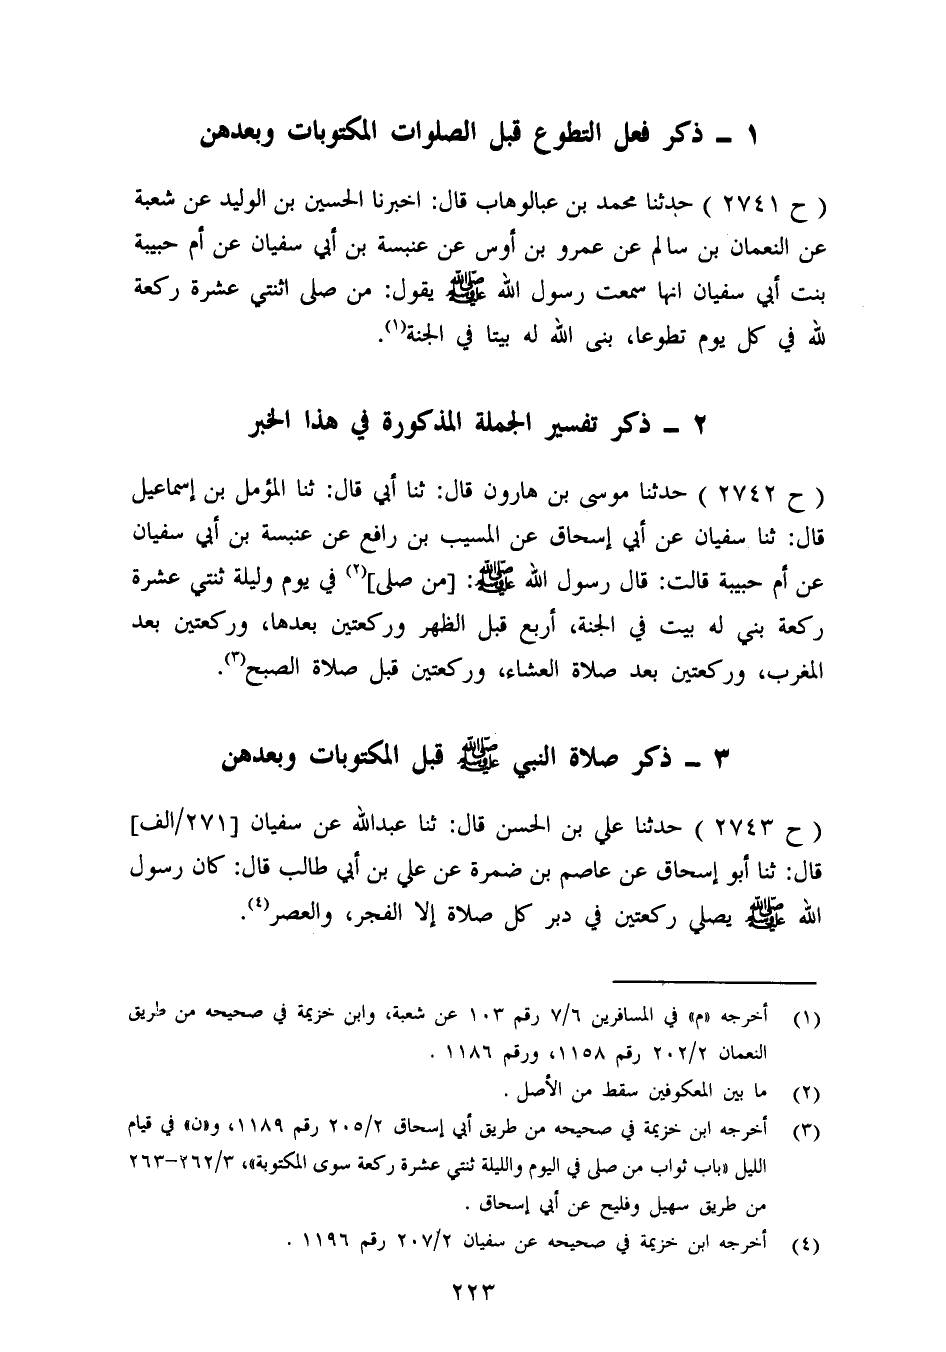 ١ ـ ذكر فعل التطوع قبل الصلوات المكتوبات وبعدهن
( ح ٢٧٤١ ) حدثنا محمد بن عبالوهاب قال: اخبرنا الحسين بن الوليد عن شعبة
عن النعمان بن سالم عن عمرو بن أوس عن عنبسة بن أبي سفيان عن أم حبيبة
بنت أبي سفيان انها سمعت رسول الله ﷺ يقول: من صلى اثنتي عشرة ركعة
لله في كل يوم تطوعا، بنى الله له بيتا في الجنة(١).
٢ ـ ذكر تفسير الجملة المذكورة في هذا الخبر
( ح ٢٧٤٢ ) حدثنا موسى بن هارون قال: ثنا أبي قال: ثنا المؤمل بن إسماعيل
قال: ثنا سفيان عن أبي إسحاق عن المسيب بن رافع عن عنبسة بن أبي سفيان
عن أم حبيبة قالت: قال رسول الله ﷺ: [من صلى](٢) في يوم وليلة ثنتي عشرة
ركعة بني له بيت في الجنة، أربع قبل الظهر وركعتين بعدها، وركعتين بعد
المغرب، وركعتين بعد صلاة العشاء، وركعتين قبل صلاة الصبح(٣).
٣ ـ ذكر صلاة النبي ﷺ قبل المكتوبات وبعدهن
( ح ٢٧٤٣ ) حدثنا علي بن الحسن قال: ثنا عبدالله عن سفيان [٢٧١/الف]
قال: ثنا أبو إسحاق عن عاصم بن ضمرة عن علي بن أبي طالب قال: كان رسول
الله ﷺ يصلي ركعتين في دبر كل صلاة إلا الفجر، والعصر(٤).
(١) أخرجه «م» في المسافرين ٧/٦ رقم ١٠٣ عن شعبة، وابن خزيمة في صحيحه من طريق
النعمان ٢٠٢/٢ رقم ١١٥٨، ورقم ١١٨٦ .
(٢) ما بين المعكوفين سقط من الأصل .
(٣) أخرجه ابن خزيمة في صحيحه من طريق أبي إسحاق ٢٠٥/٢ رقم ١١٨٩، و«ن» في قيام
الليل «باب ثواب من صلى في اليوم والليلة ثنتي عشرة ركعة سوى المكتوبة»، ٢٦٢/٣-٢٦٣
من طريق سهيل وفليح عن أبي إسحاق .
(٤) أخرجه ابن خزيمة في صحيحه عن سفيان ٢٠٧/٢ رقم ١١٩٦ .
٢٢٣